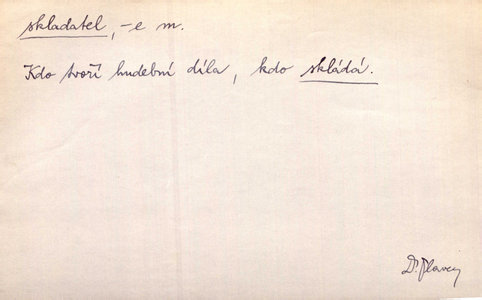 skladatel, -e m.
Kdo tvoří hudební díla, kdo skládá.